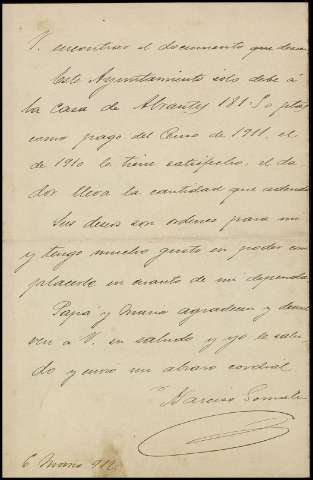 V. encontrase el documento que desea
Este Ayuntamiento solo debe á
la Casa de Abrantes 181'50 ptas
como pago del Censo de 1911, el
de 1910 lo tiene satisfecho, el da
dor lleva la cantidad que
Sus deseos son ordenes para mi
y tengo mucho gusto en poder com
placerle en cuanto de mi dependa
Papá y Mario agradecen y devuel
ven a V. su saludo y yo le salu
do y envio un abrazo cordial
Narciso
6 Marzo 912.